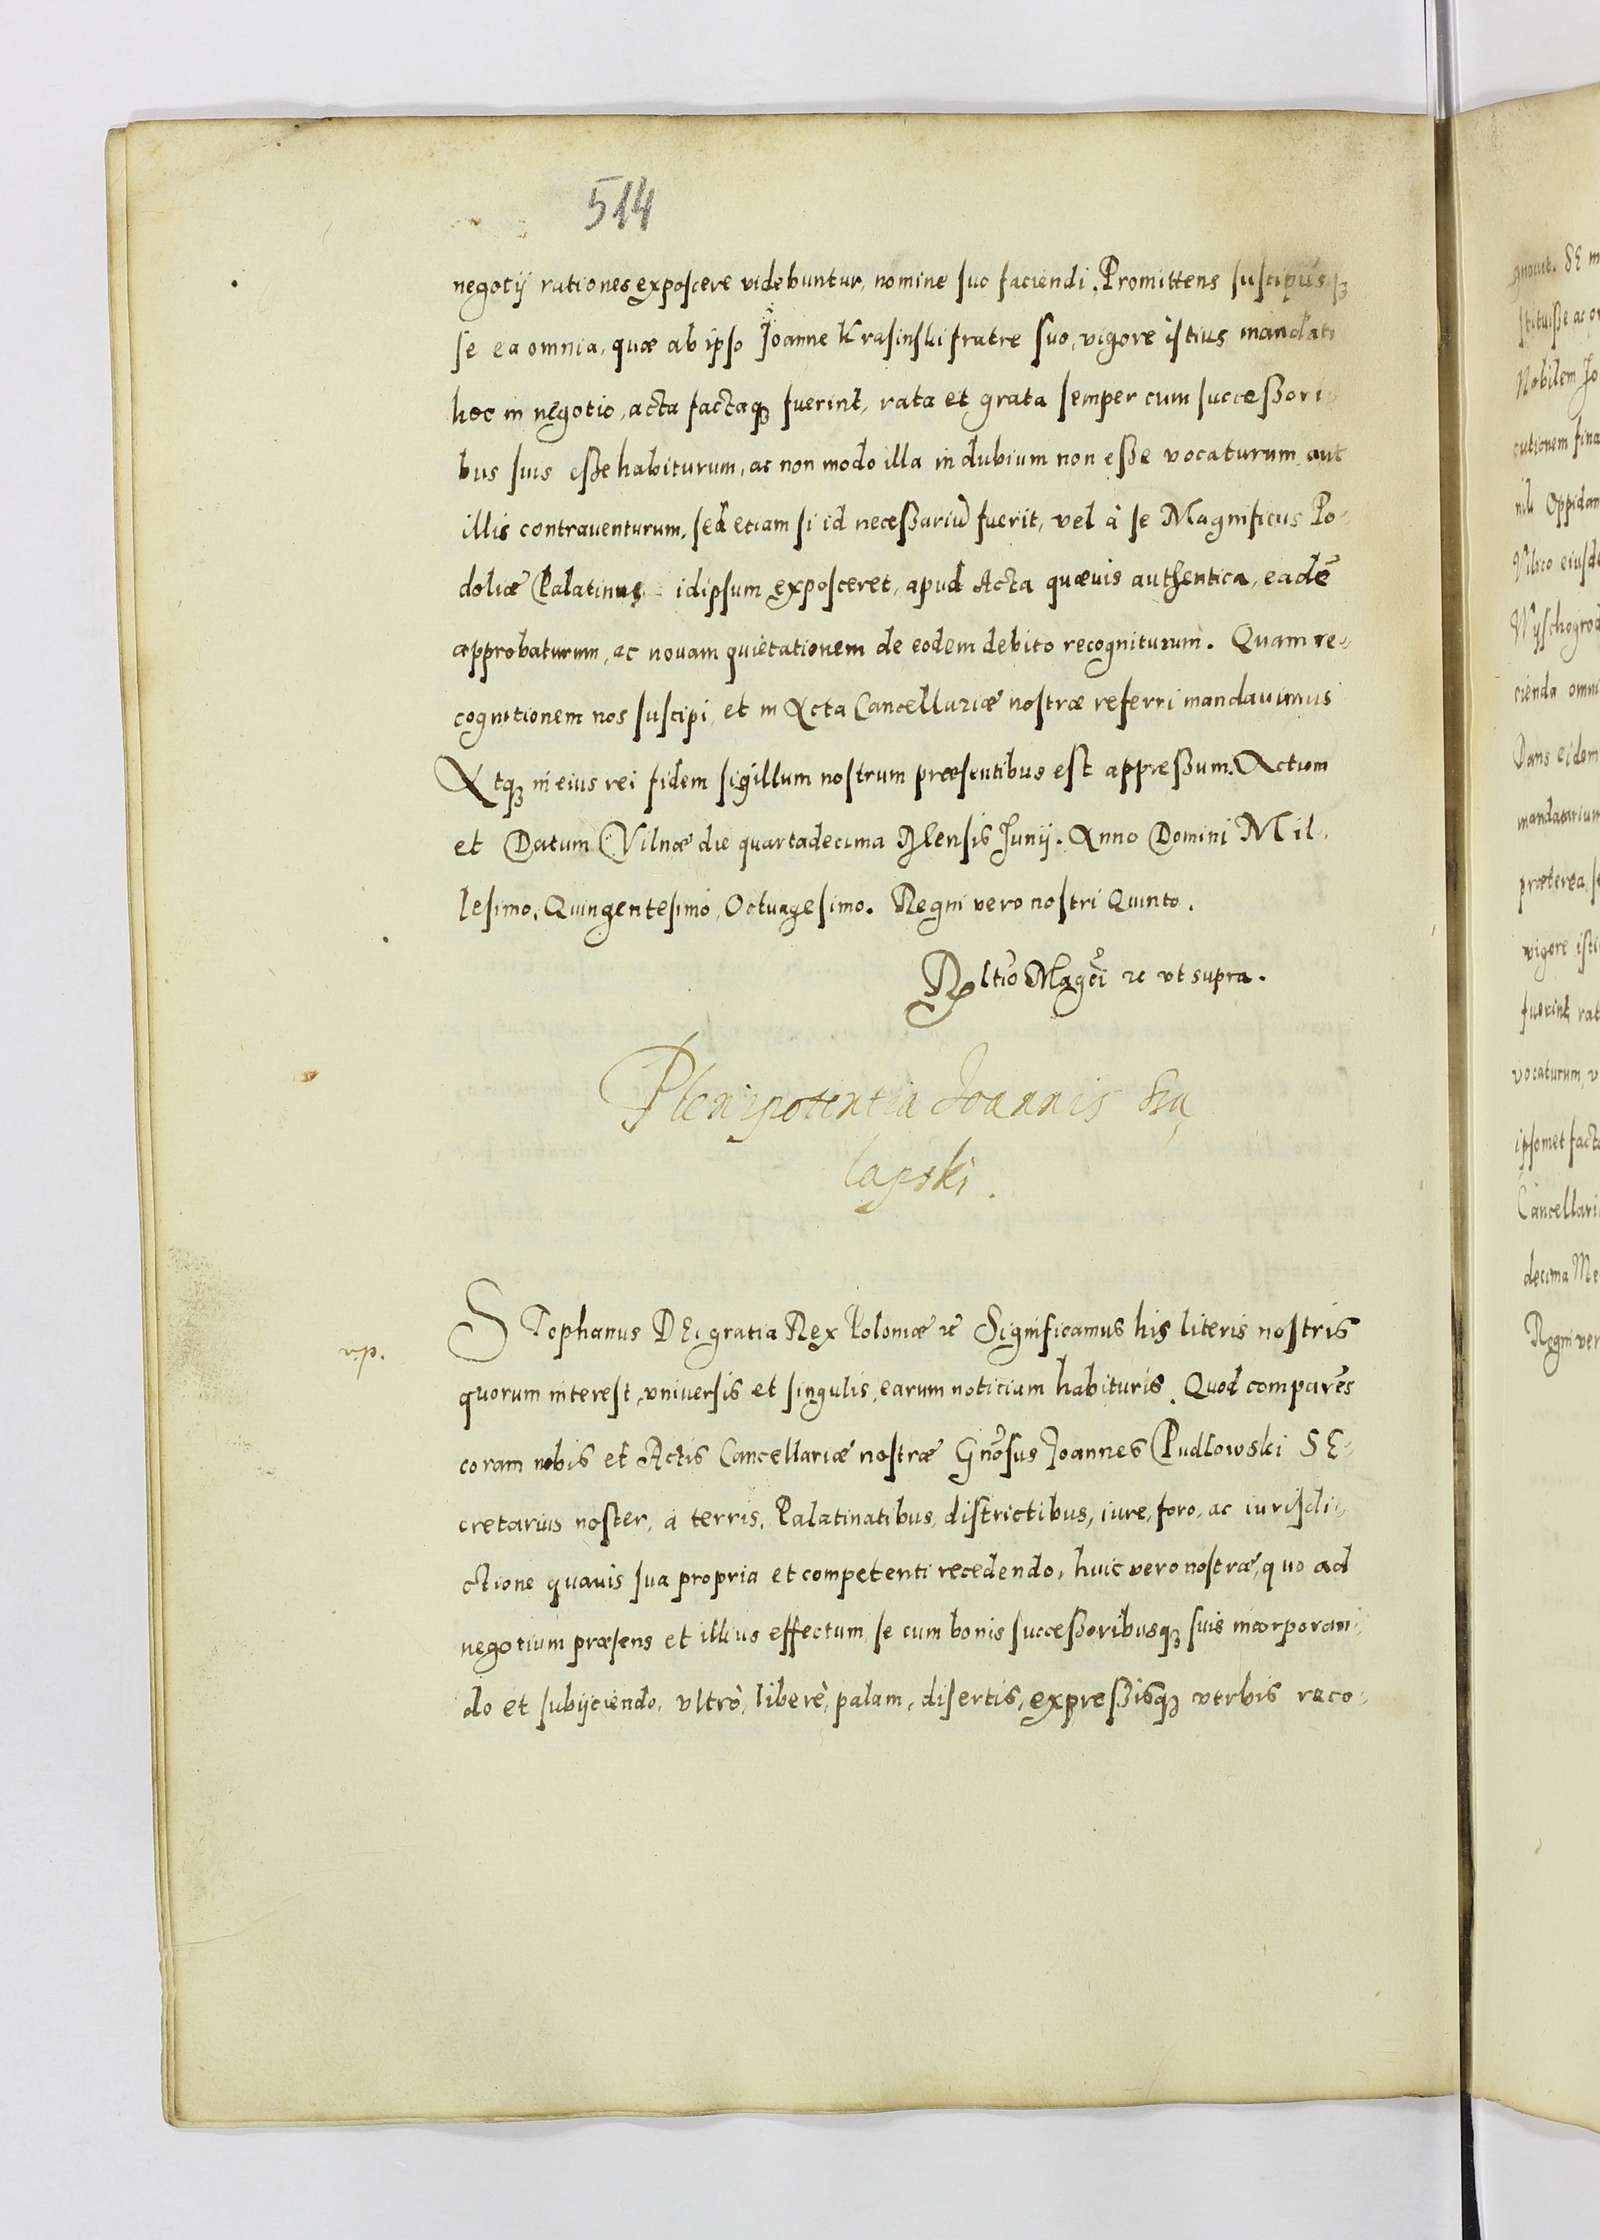 514
negotij rationes exposcere videbuntur, nomine suo faciendi. Promittens
se ea omnia, quæ ab ipso Joanne Krasinski fratre suo, vigore istius mandati
hoc in negotio, acta factaq3 fuerint, rata et grata semper cum successori-
bus suis esse habiturum, ac non modo illa in dubium non esse vocaturum aut
illis contraventurum, sed etiam si id necessariũ fuerit, vel à se Magnificus Po-
doliæ Palatinus idipsum exposceret, apud Acta quævis authentica, eadẽ
approbaturum, ac novam quietationem de eodem debito recogniturum. Quam re-
cognitionem nos suscipi, et in Acta Cancellariæ nostræ referri mandavimus
Atq3 in eius rei fidem sigillum nostrum præsentibus est appressum. Actum
et Datum Vilnæ die quartadecima Mensis Junij. Anno Domini Mil-
lesimo, Quingentesimo, Octuagesimo. Regni vero nostri Quinto.
Rltio Magci ꝛc vt supra.
Plenipotentia Joannis
S Tephanus DEi gratia Rex Poloniæ ꝛc Significamus his literis nostris
v.p.
quorum interest, vniversis et singulis, earum noticiam habituris. Quod comparẽs
coram nobis et Actis Cancellariæ nostræ Gnõsus Joannes Pudlowski SE-
cretarius noster, à terris, Palatinatibus, districtibus, iure, foro, ac iurisdi-
ctione quavis sua propria et competenti recedendo, huic vero nostræ, quo ad
negotium præsens et illius effectum, se cum bonis successoribusq3 suis incorporan-
do et subijciendo, vltrò, liberè, palam, disertis, expressisq3 verbis reco-